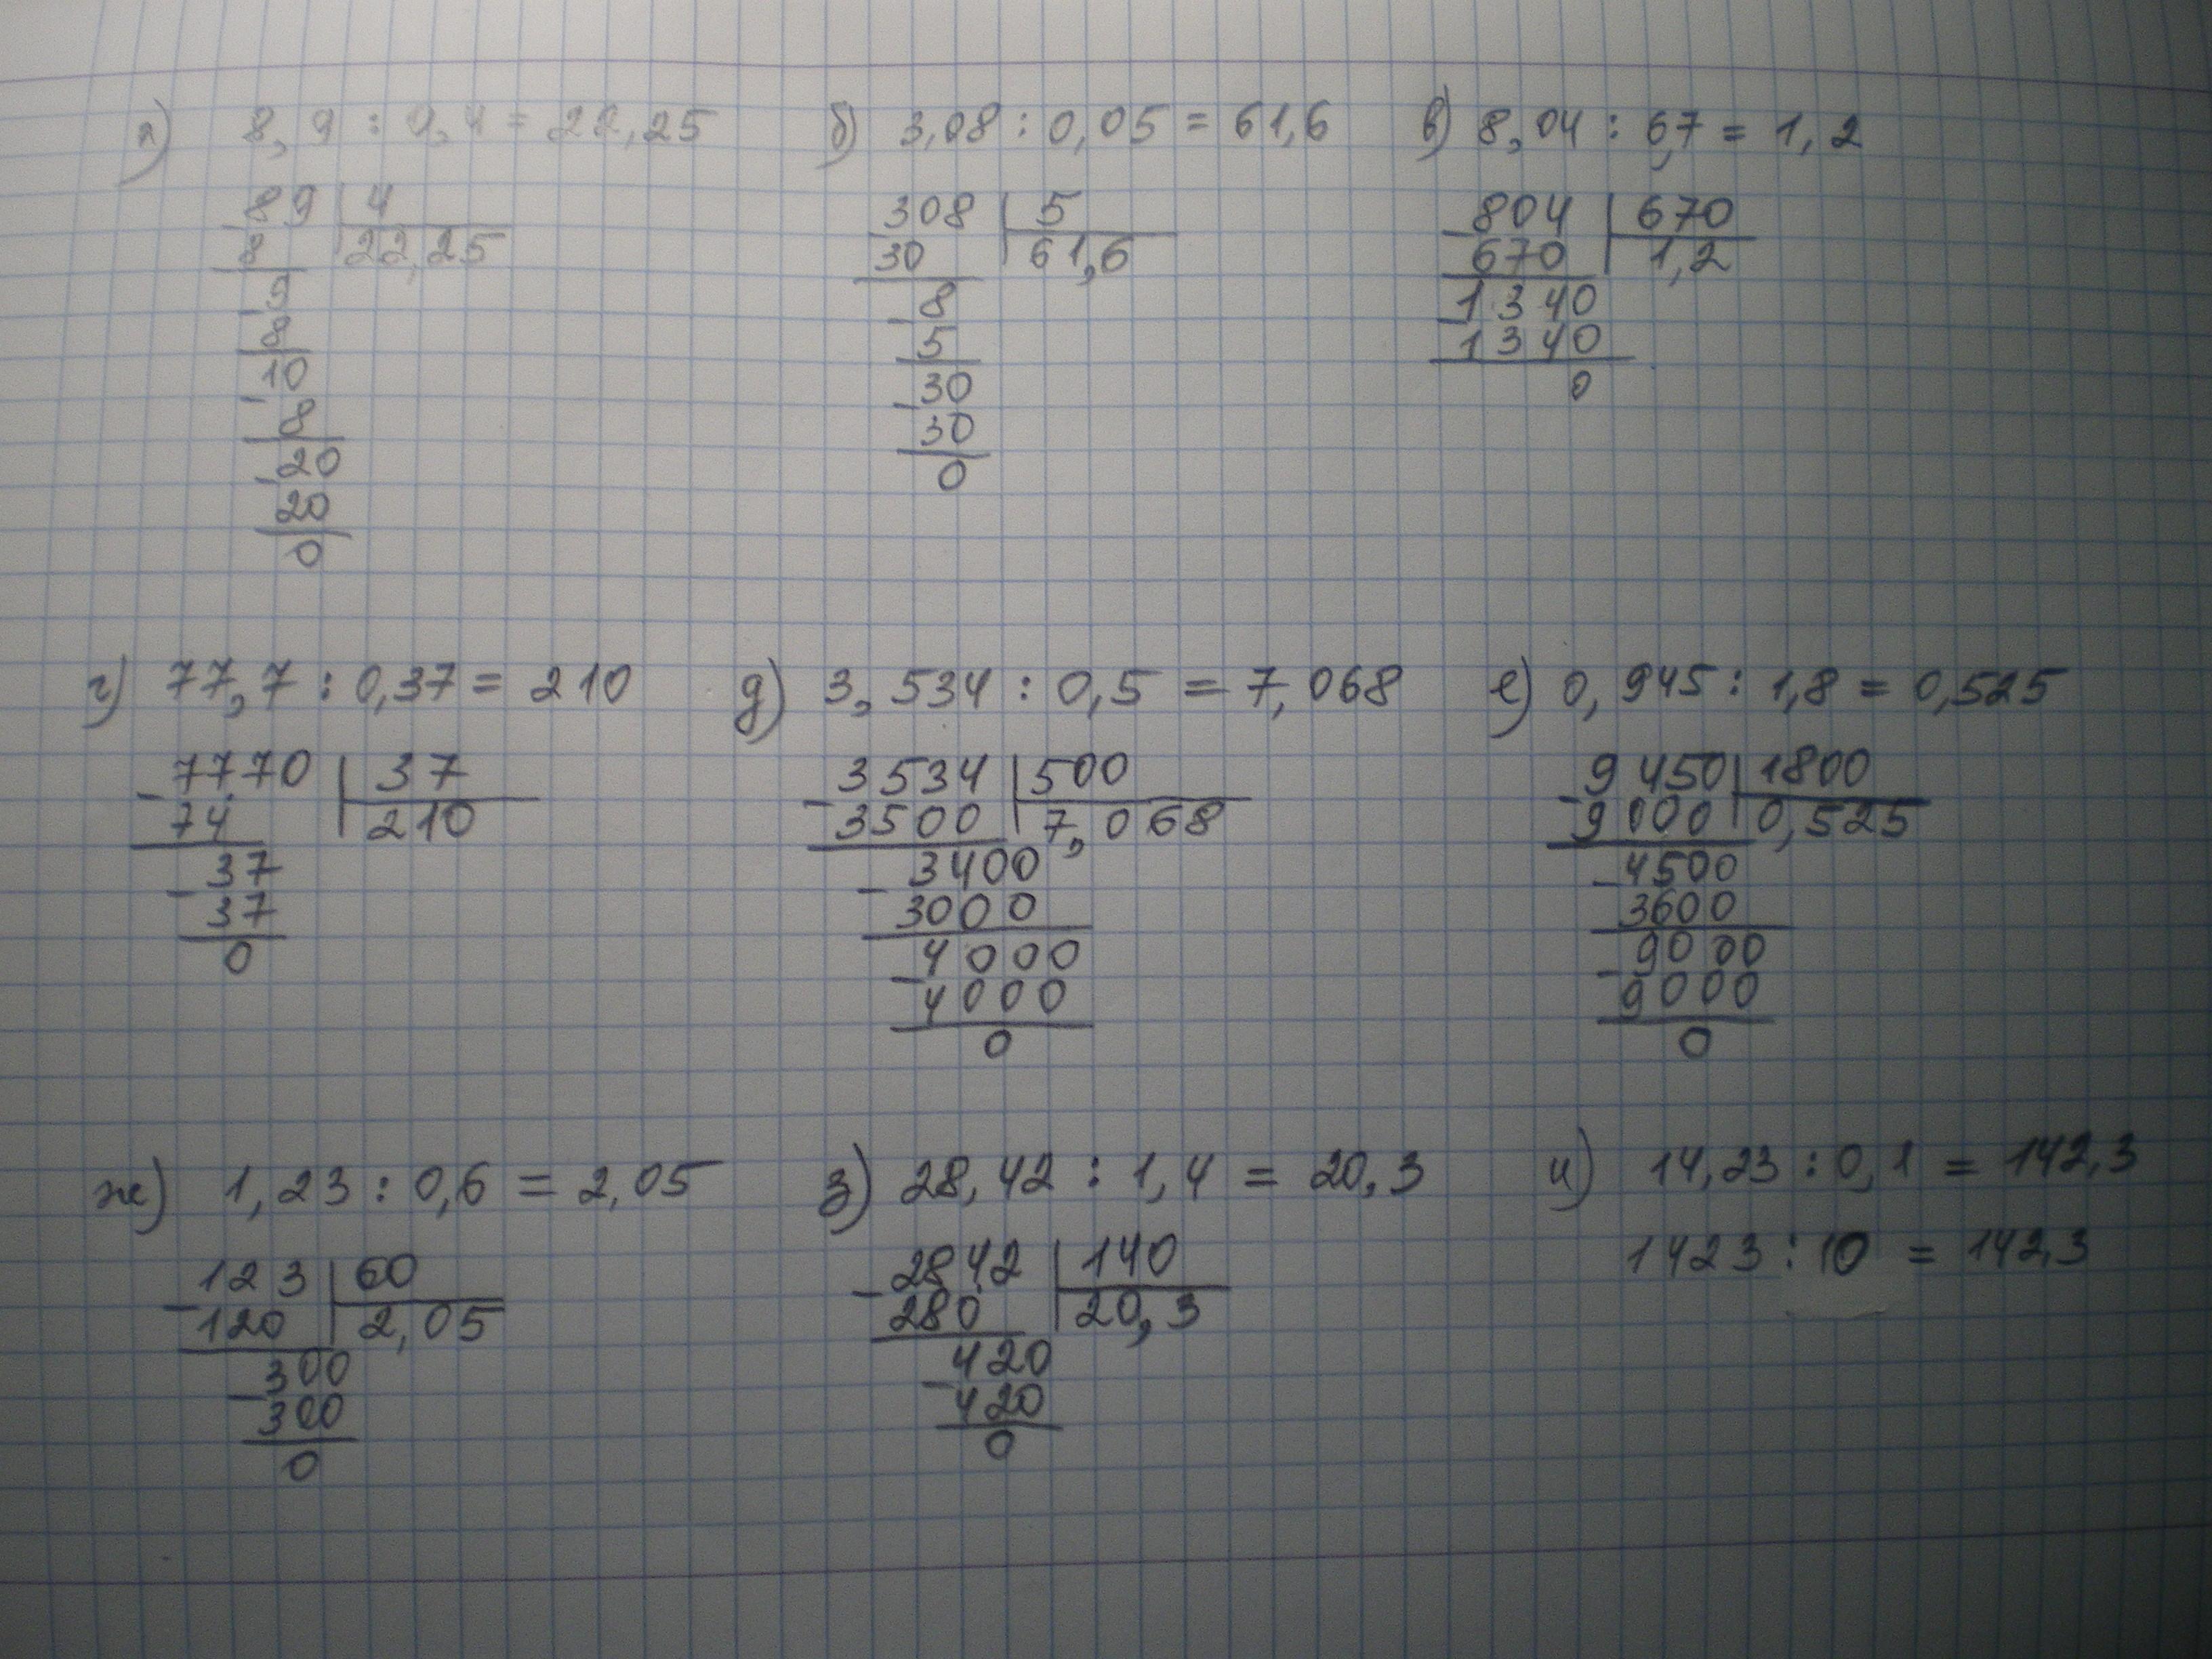 а) 8,9 : 0,4 = 22,25
89 4
8 22,25
9
8
10
8
20
20
0
б) 3,08 : 0,05 = 61,6
308 5
30 61,6
8
5
30
30
0
в) 8,04 : 6,7 = 1,2
804 670
670 1,2
1340
1340
0
г) 77,7 : 0,37 = 210
7770 37
74 210
37
37
0
д) 3,534 : 0,5 = 7,068
3534 500
3500 7,068
3400
3000
4000
4000
0
е) 0,945 : 1,8 = 0,525
9450 1800
9000 0,525
4500
3600
9000
9000
0
ж) 1,23 : 0,6 = 2,05
123 60
120 2,05
300
300
0
з) 28,42 : 1,4 = 20,3
2842 140
280 20,3
420
420
0
и) 14,23 : 0,1 = 142,3
1423 : 10 = 142,3